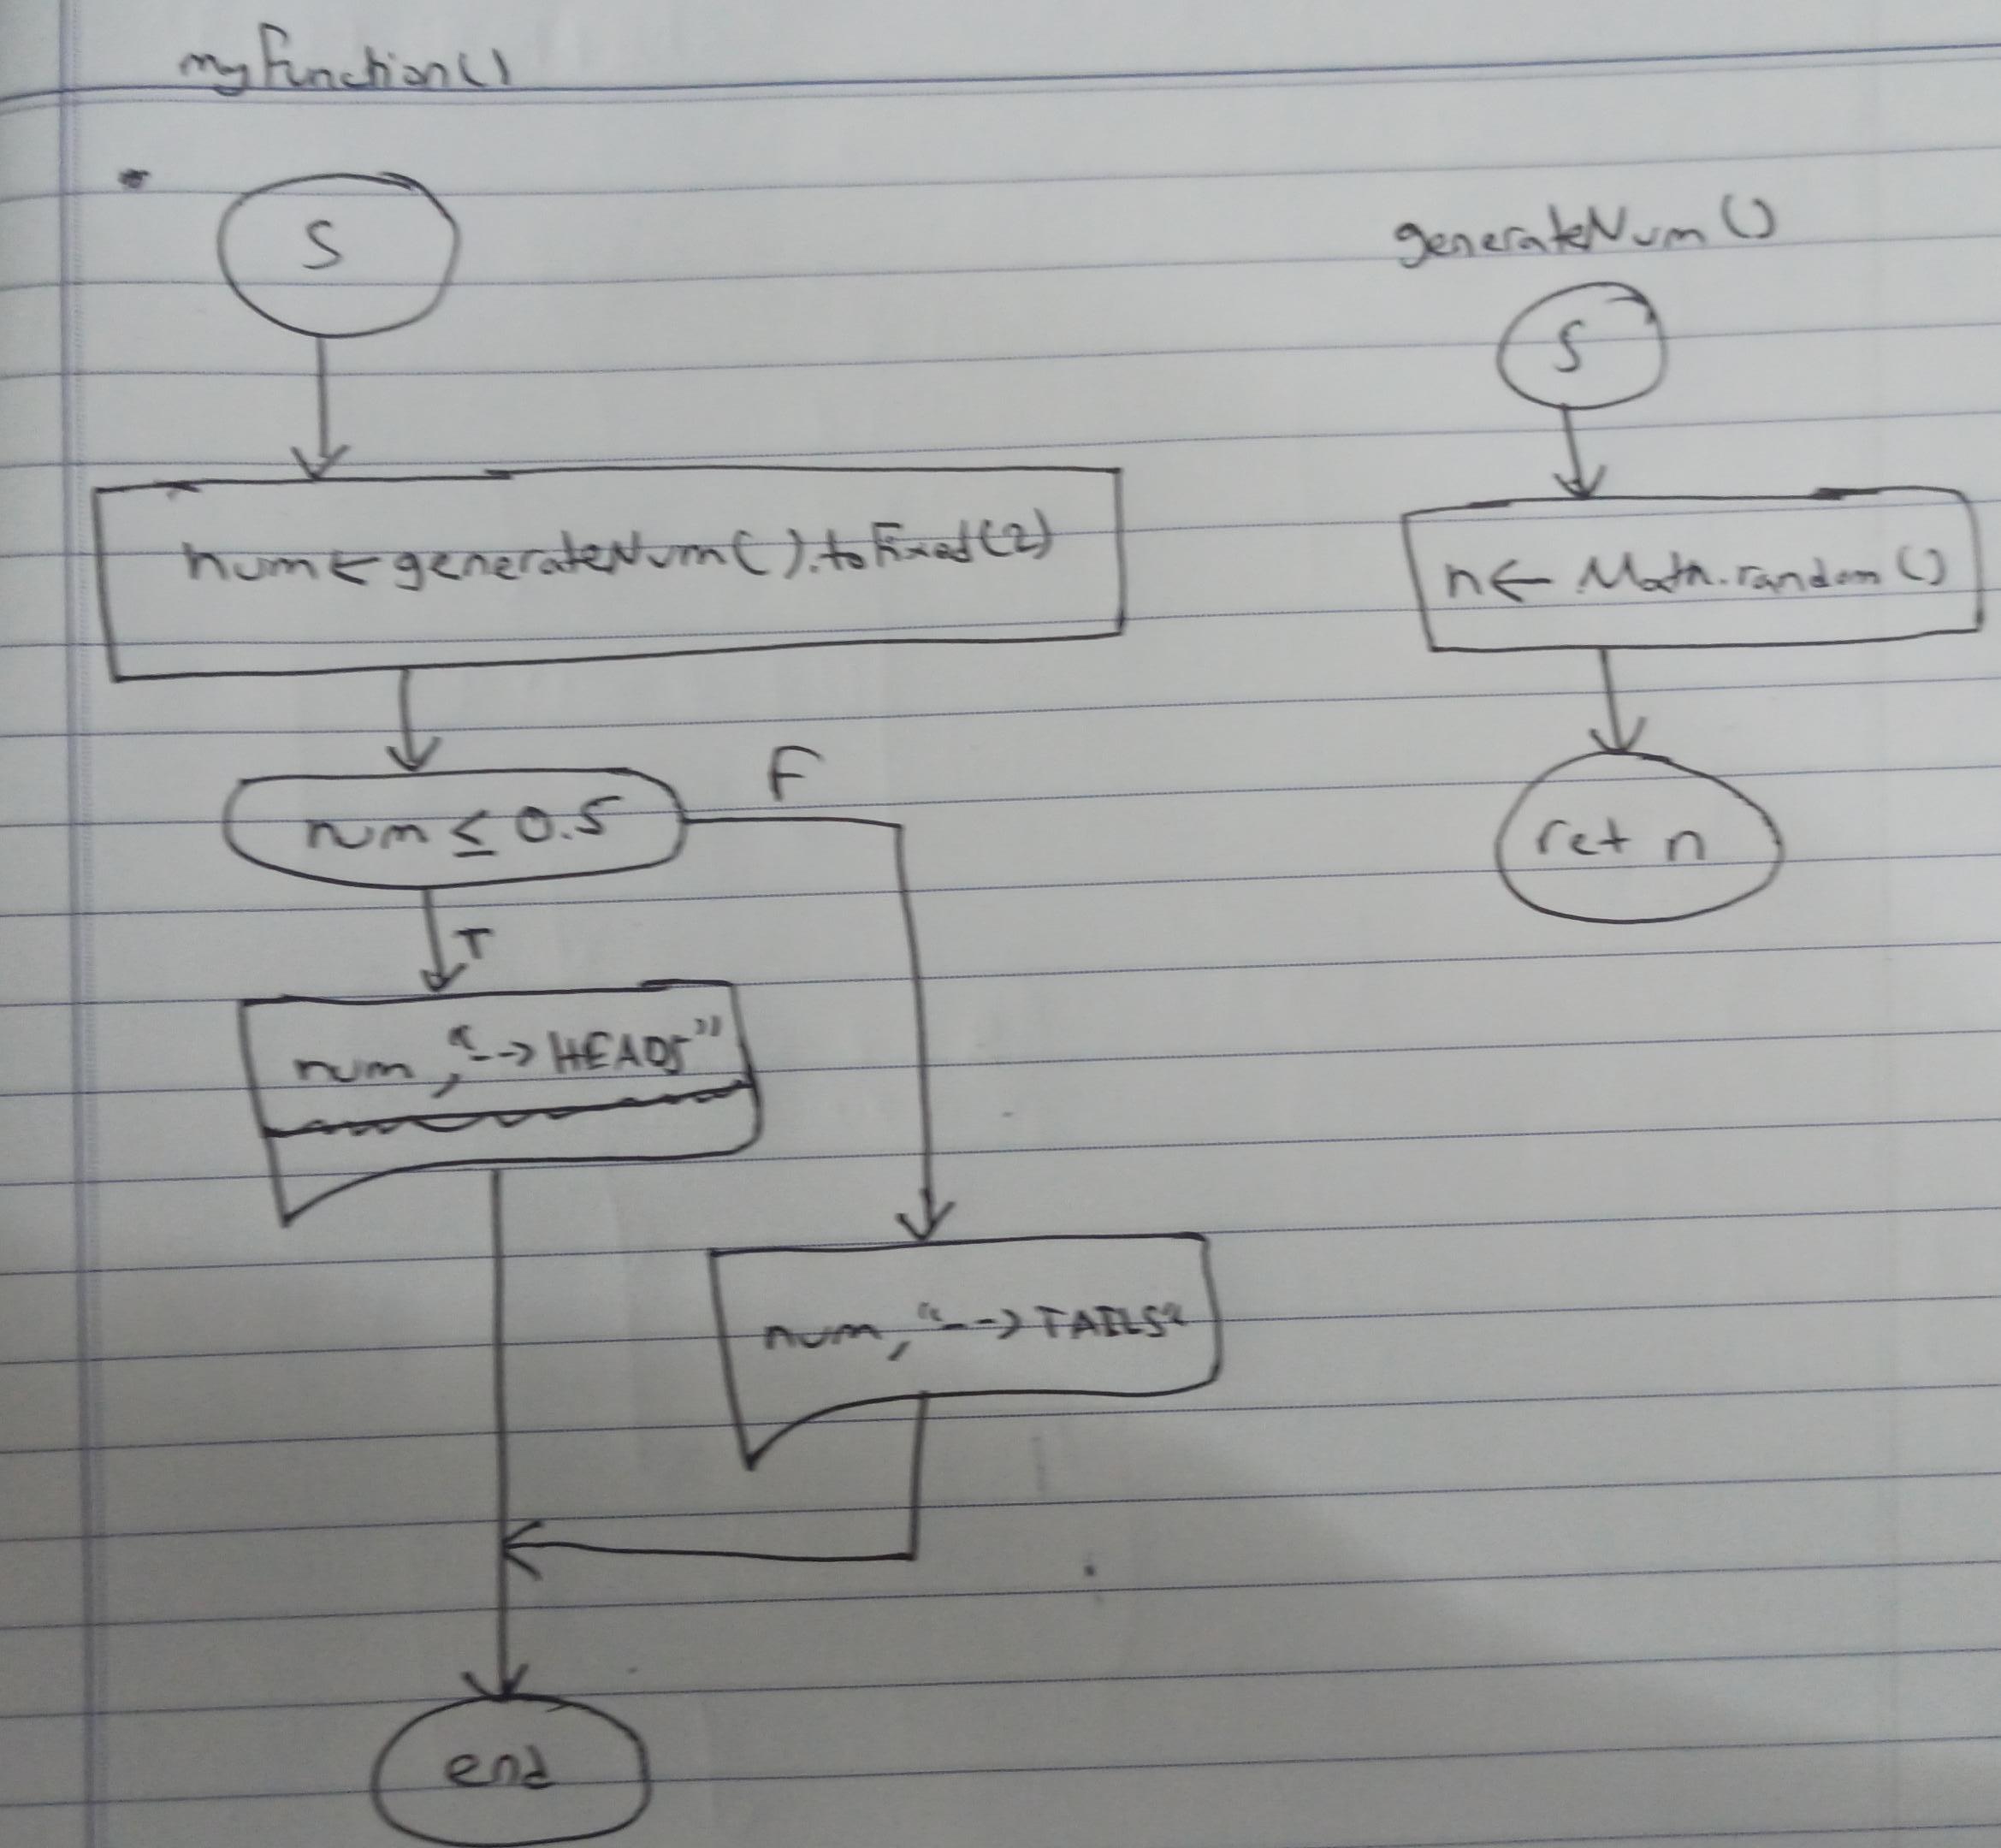 myFunction()
S
num ← generateNum().toFixed(2)
num ≤ 0.5
F
T
num, "--> HEADS"
num, "--> TAILS"
end
generateNum()
S
n ← Math.random()
ret n